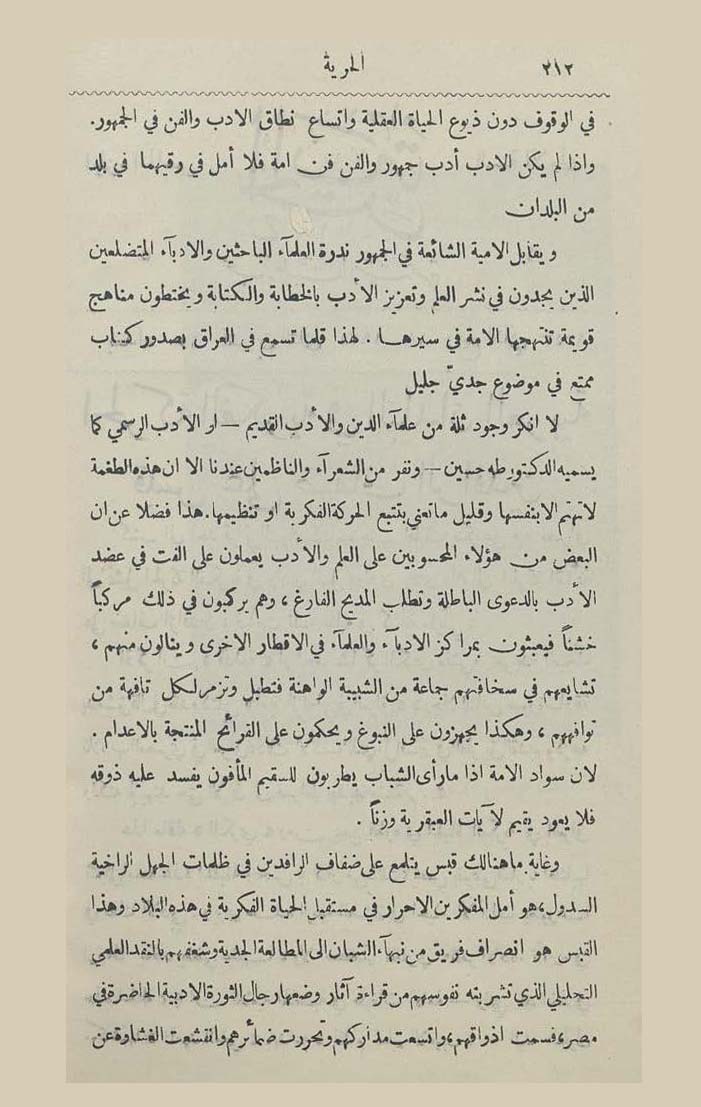 ٢١٢
الحرية
في الوقوف دون ذيوع الحياة العقلية واتساع نطاق الادب والفن في الجمهور.
واذا لم يكن الادب أدب جمهور والفن فن امة فلا أمل في رقيهما في بلد
من البلدان
ويقابل الامية الشائعة في الجمهور ندرة العلمآء الباحثين والادبآء المتضلعين
الذين يجدون في نشر العلم وتعزيز الأدب بالخطابة والكتابة ويختطون مناهج
قويمة تنتهجها الامة في سيرها . لهذا قلما تسمع في العراق بصدور كتاب
ممتع في موضوع جدي جليل
لا انكر وجود ثلة من علمآء الدين والأدب القديم — او الأدب الرسمي كما
يسميه الدكتور طه حسين — ونفر من الشعرآء والناظمين عندنا الا ان هذه الطغمة
لاتهتم الا بنفسها وقليل ماتعني بتتبع الحركة الفكرية او تنظيمها. هذا فضلا عن ان
البعض من هؤلاء المحسوبين على العلم والأدب يعملون على الفت في عضد
الأدب بالدعوى الباطلة وتطلب المديح الفارغ ، وهم يركبون في ذلك مركباً
خشناً فيعبثون بمراكز الادبآء والعلمآء في الاقطار الاخرى وينالون منهم ،
تشايعهم في سخافتهم جماعة من الشبيبة الواهنة فتطبل وتزمر لكل تافهة من
توافههم ، وهكذا يجهزون على النبوغ ويحكمون على القرائح المنتجة بالاعدام .
لان سواد الامة اذا مارأى الشباب يطربون للسقيم المأفون يفسد عليه ذوقه
فلا يعود يقيم لآيات العبقرية وزناً .
وغاية ماهنالك قبس يتلمع على ضفاف الرافدين في ظلمات الجهل الراخية
السدول، هو أمل المفكرين الاحرار في مستقبل الحياة الفكرية في هذه البلاد وهذا
القبس هو انصراف فريق من نبهآء الشبان الى المطالعة الجدية وشغفهم بالنقد العلمي
التحليلي الذي تشربته نفوسهم من قراءة آثار وضعها رجال الثورة الادبية الحاضرة في
مصر، فسمت اذواقهم، واتسعت مداركهم وتحررت ضمائرهم وانقشعت الغشاوة عن